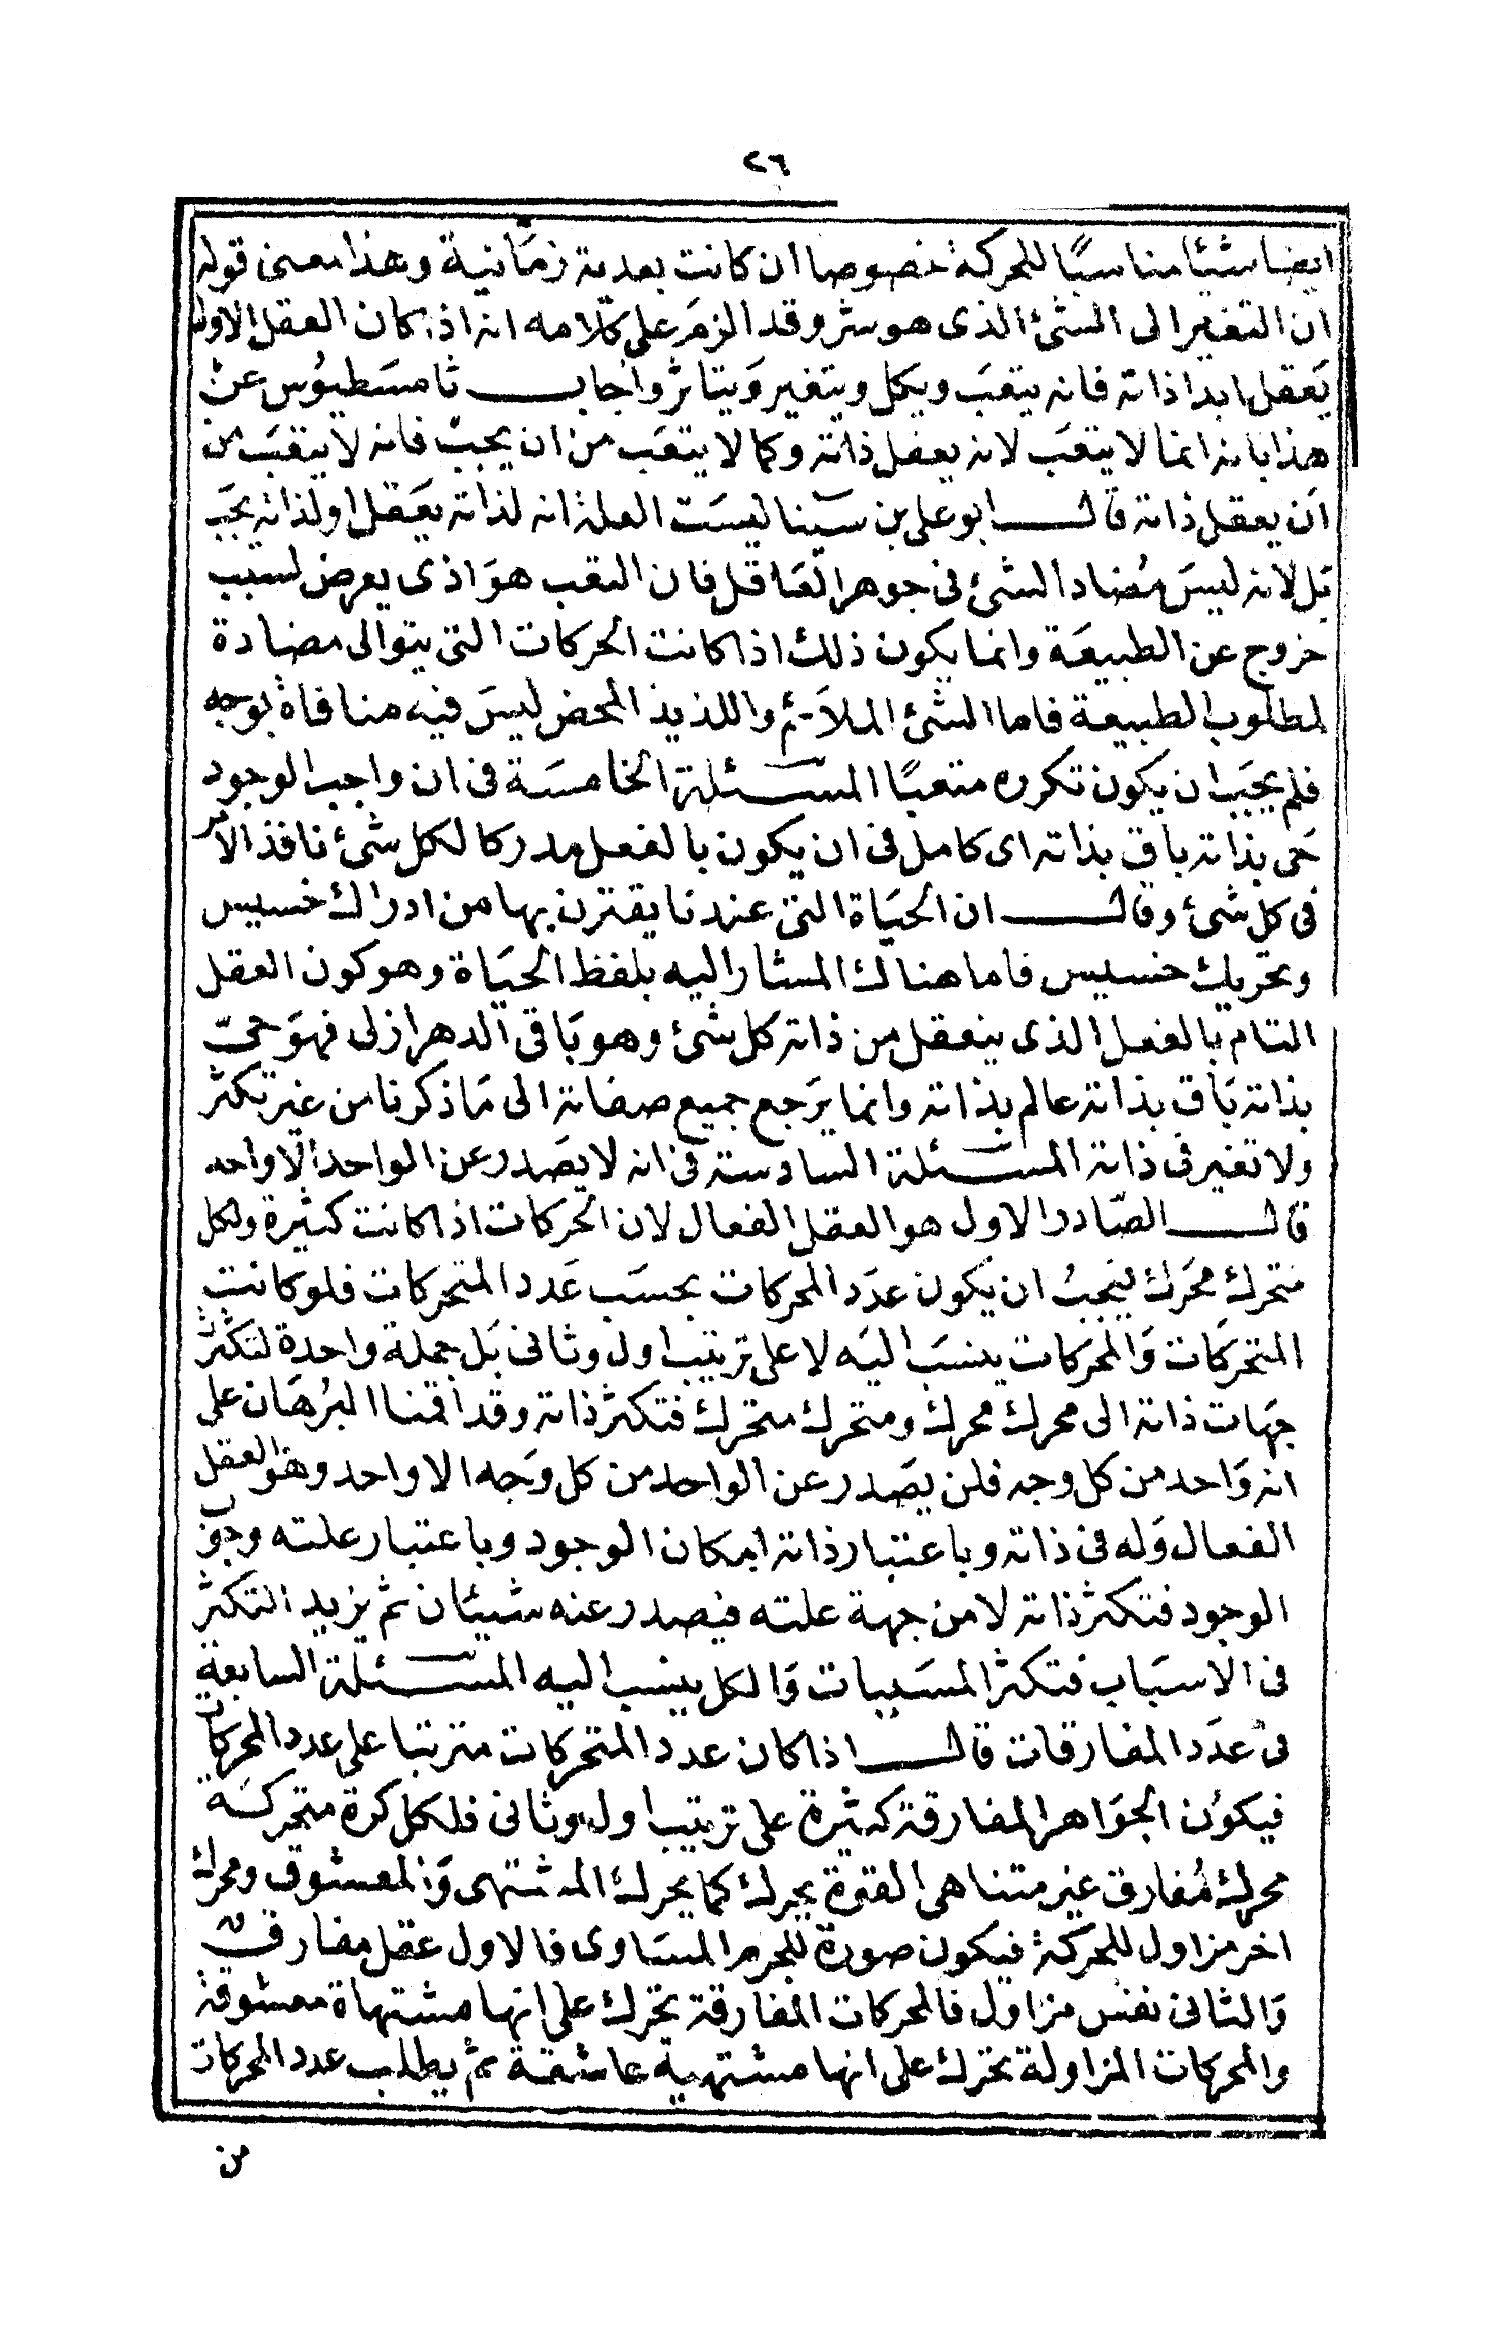 ٢٦
ايضا شيئا مناسبًا للحركة خصوصا ان كانت بعدية زمانية وهذا معنى قوله
ان التغير الى الشئ الذى هو شر وقد الزم على كلامه انه اذا كان العقل الاول
يَعقل ابدا ذاته فانه يتعَب ويكل ويتغير وَيتاثر واجاب ثامسَطيوُس عن
هذا بانه انما لا يتعَب لانه يعقل ذاته وكما لا يتعَب من ان يحبّ فانه لا يتعَب من
اَن يعقل ذاته قال ابو على بن سينا ليسَت العلة انه لذاته يعَقل او لذاته يحَب
بَل لانه ليسَ مُضاد الشئ فى جوهر العَاقل فان التعب هوَ اذى يعرض لسبب
خروج عن الطبيعَة وانما يكون ذلك اذا كانت الحركات التى يتوالى مضادة
لمطلوب الطبيعة فاما الشئ الملاَئم واللذيذ المحض ليسَ فيه منافاة بوجه
فلم يجَب ان يكون تكرره متعبًا المسئلة الخامسَة فى ان واجب الوجود
حَى بذاته باق بذاته اى كامل فى ان يكون بالفعل مدركا لكل شئ نافذ الأمر
فى كل شئ وقال ان الحيَاة التى عندنا يقترن بها من ادراك خسيس
وتحريك خسيس فاما هناك المشار اليه بلفظ الحيَاة وهو كون العقل
التام بالفعل الذى يتعقل من ذاته كل شئ وهو بَاقى الدهر ازلى فهوَ حىّ
بذاته بَاق بذاته عالم بذاته وانما يرَجع جميع صفاته الى مَا ذكرنا من غير تكثر
ولا تغير فى ذاته المسئلة السادسة فى انه لا يصَدر عن الواحد الا واحد
قال الصّادر الاول هو العقل الفعال لان الحركات اذا كانت كثيرة ولكل
متحرك محَرك فيجبُ ان يكون عدَد المحركات بحسَب عَدد المتحركات فلو كانت
المتحركَات وَالمحركات ينسَب اليَه لا على ترتيب اول وثانى بَل جملة واحدة لتكثرت
جهَات ذاته الى محرك محرك ومتحرك متحرك فتكثر ذاته وقد اقمنا البرُهَان على
انه وَاحد من كل وجه فلن يصَدر عن الواحد من كل وَجه الا واحد وهوَ العقل
الفعال وَله فى ذاته وباعتبار ذاته امكان الوجود وباعتبار علته وجوب
الوجود فتكثر ذاته لا من جهة علته فيصدر عنه شيئان ثم يزيد التكثر
فى الاسبَاب فتكثر المسَببات وَالكل ينسب اليه المسئلة السابعة
فى عدَد المفارقات قال اذا كان عدد المتحركات مترتبا على عدد المحركات
فيكوُن الجوَاهر المفارقة كثيرة على ترتيب اول وثانى فلكل كرة متحركَة
محرك مُفارق غير متناهى القوة يحرك كما يحرك المشتهى وَالمعشوق ومحرك
اخر مزاول للحركة فيكون صورة للجرم المسَاوى فالاول عقل مفارق
وَالثانى نفس مزاول فالمحركات المفارقة تحرك على انها مشتهاة معشوقة
والمحركات المزاولة تحرك على انها مشتهية عاشقة ثم يطلب عدد المحركات
من